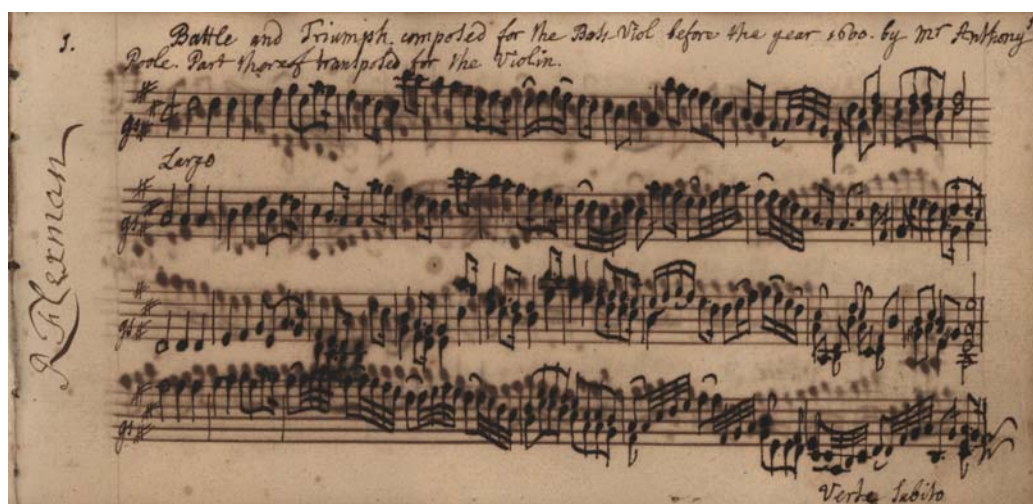 1. Battle and Triumph. composed for the Bass-Viol before the year 1600. by Mr Anthony
Poole. Part thereof transposed for the Violin.
Largo
Verte Subito